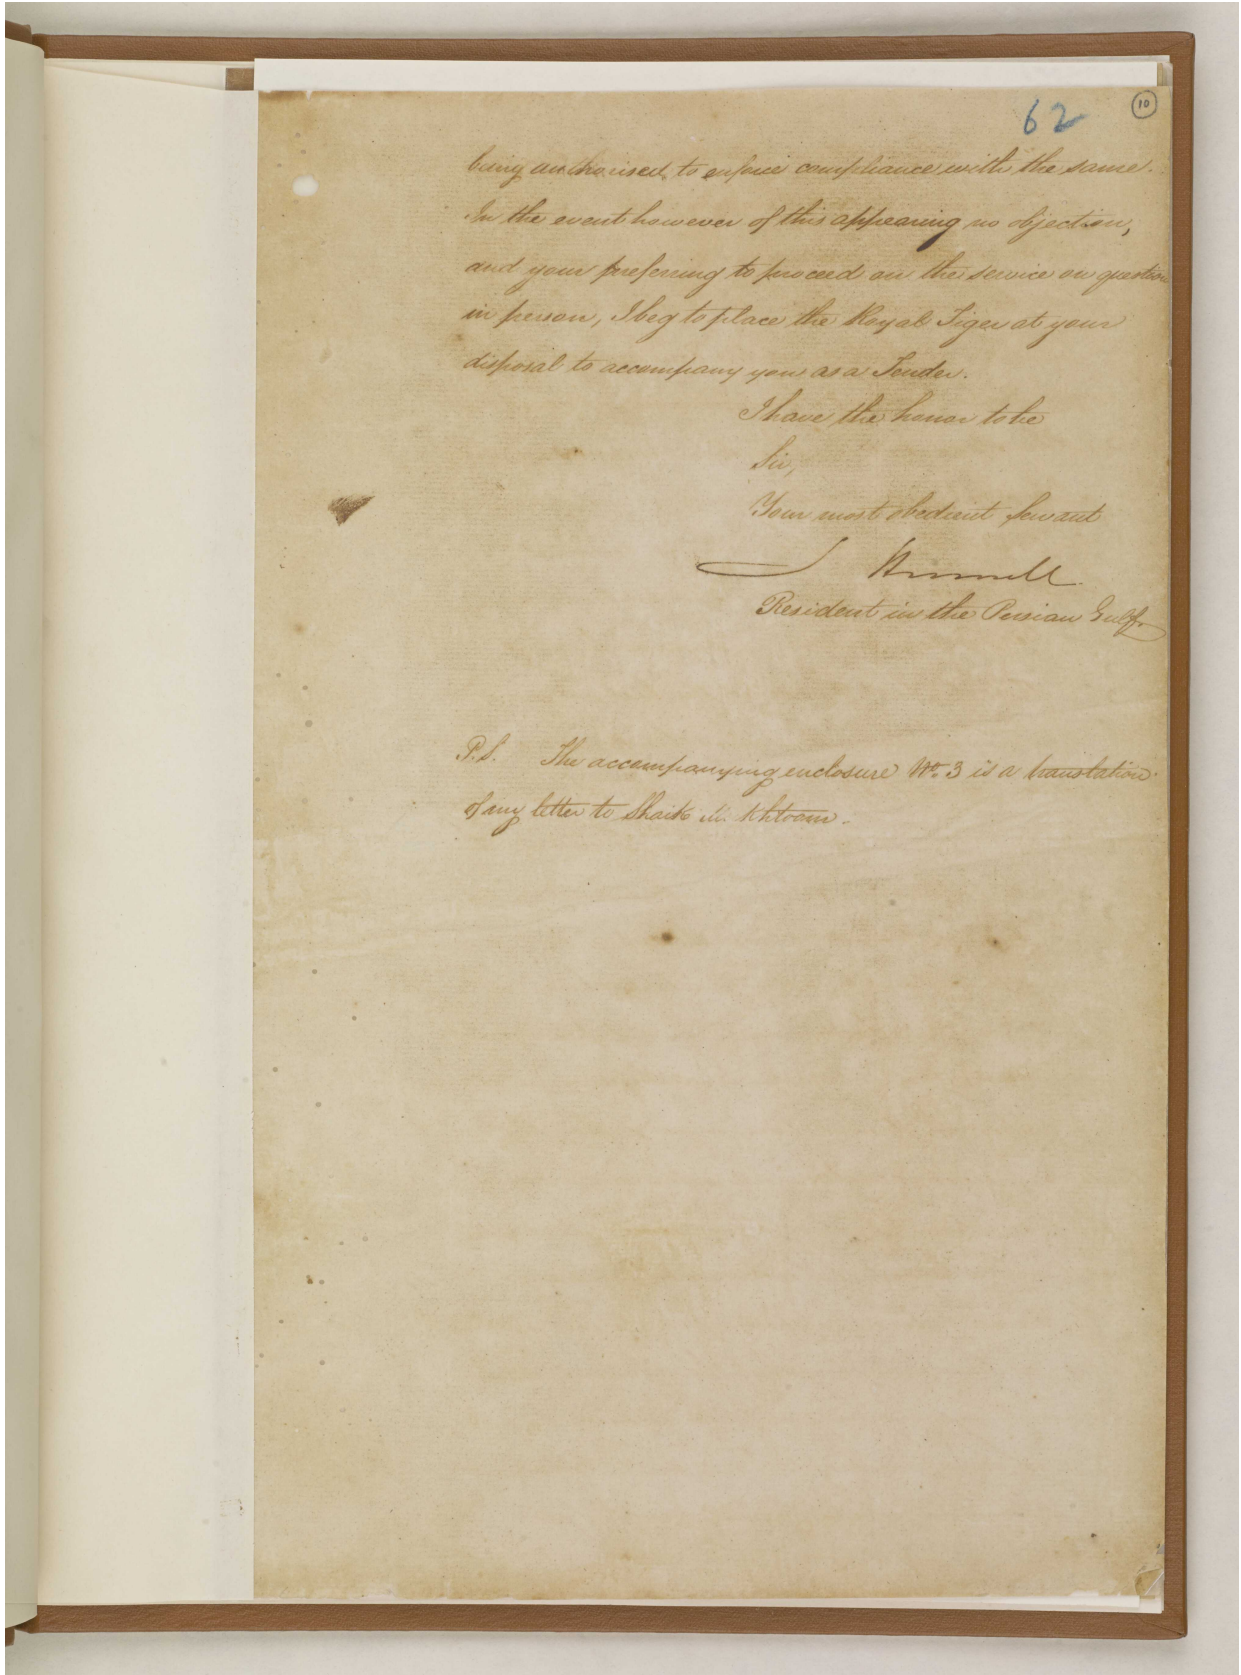 62
10
being authorised to enforce compliance with the same.
In the event however of this appearing no objection,
and your preferring to proceed on the service in question
in person, I beg to place the Royal Tiger at your
disposal to accompany you as a Tender.
I have the honor to be
Sir,
Your most obedient Servant
J Hennell
Resident in the Persian Gulf.
P.S. The accompanying enclosure No. 3 is a translation
of my letter to Shaik